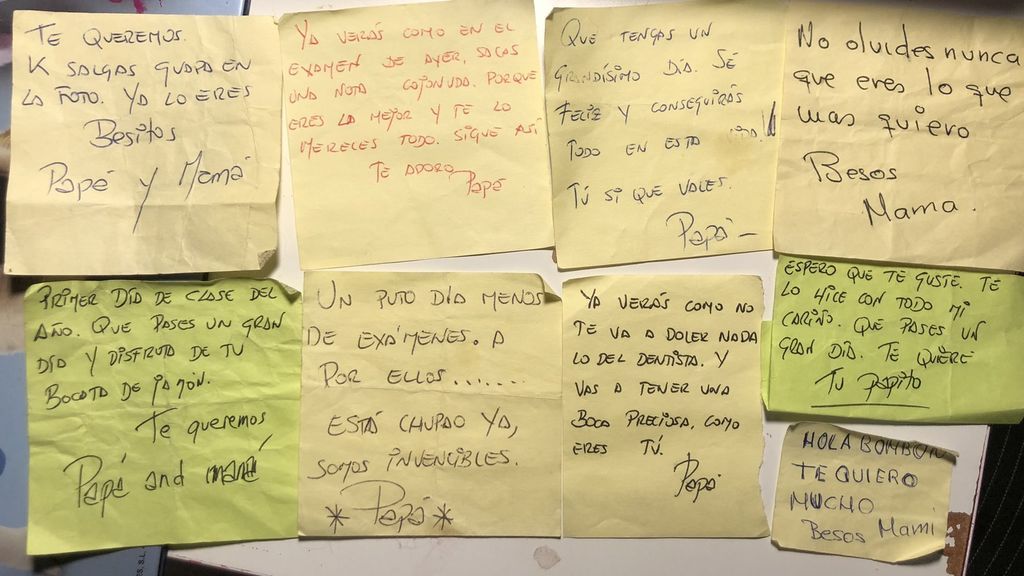 TE QUEREMOS.
K SALGAS GUAPA EN
LA FOTO. YA LO ERES
Besitos
Papá y Mamá
YA VERÁS COMO EN EL
EXAMEN DE AYER, SACAS
UNA NOTA COJONUDA. PORQUE
ERES LA MEJOR Y TE LO
MERECES TODO. SIGUE ASÍ
TE ADORO
Papá
QUE TENGAS UN
GRANDÍSIMO DÍA. SÉ
FELIZ Y CONSEGUIRÁS
TODO EN ESTA VIDA!!
TÚ SI QUE VALES.
Papá
No olvides nunca
que eres lo que
mas quiero
Besos
Mama.
PRIMER DÍA DE CLASE DEL
AÑO. QUE PASES UN GRAN
DÍA Y DISFRUTA DE TU
BOCATA DE JAMÓN.
Te queremos
Papá and mamá
UN PUTO DÍA MENOS
DE EXÁMENES. A
POR ELLOS.......
ESTÁ CHUPAO YA,
SOMOS INVENCIBLES.
* Papá *
YA VERÁS COMO NO
TE VA A DOLER NADA
LO DEL DENTISTA. Y
VAS A TENER UNA
BOCA PRECIOSA, COMO
ERES TÚ.
Papá
ESPERO QUE TE GUSTE. TE
LO HICE CON TODO MI
CARIÑO. QUE PASES UN
GRAN DÍA. TE QUIERE
Tu papito
HOLA BOMBON
TE QUIERO
MUCHO
Besos Mami